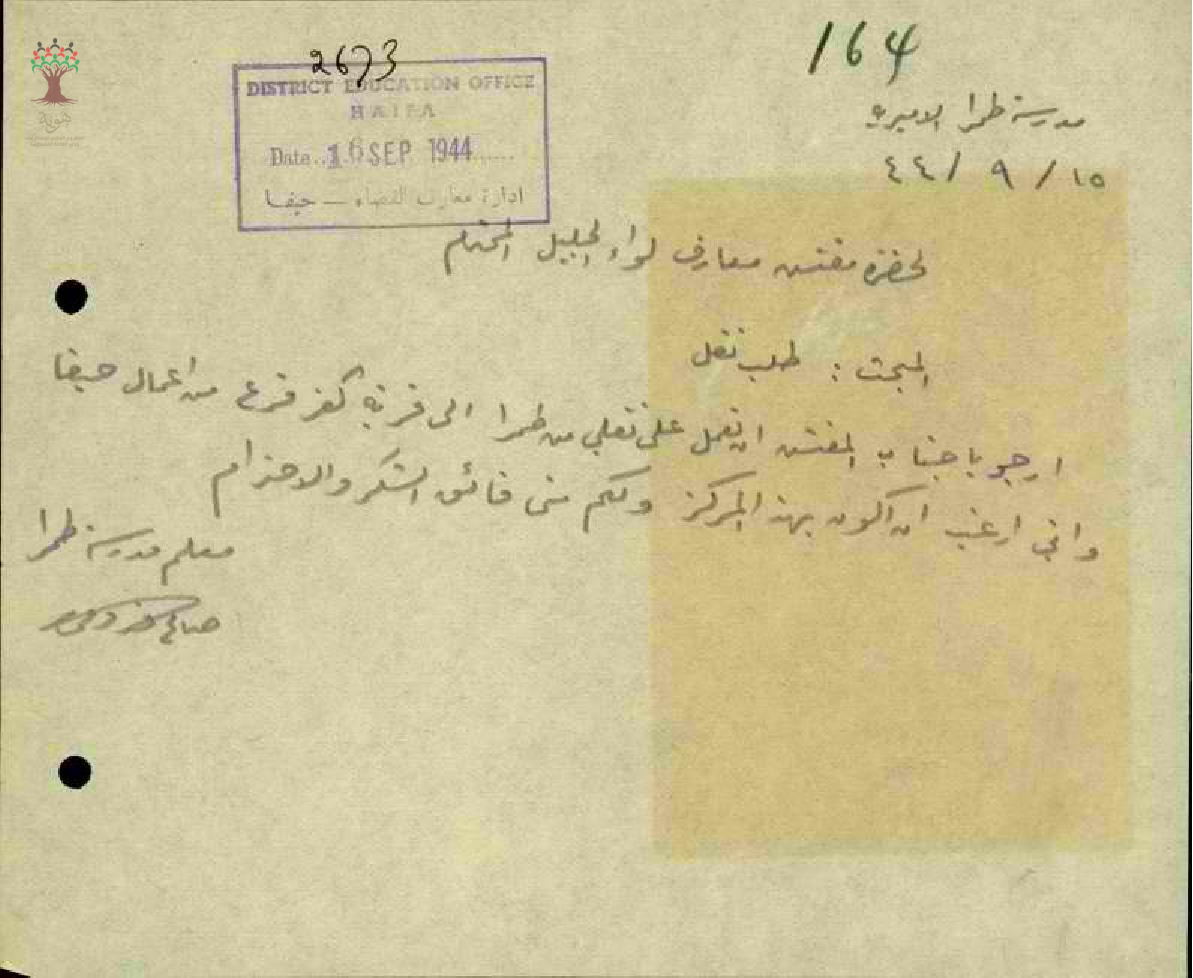 164
2673
DISTRICT EDUCATION OFFICE
HAIFA
Date..16 SEP 1944......
ادارة معارف القضاء — حيفا
هوية
مدرسة طمرا الاميرية
١٥ / ٩ / ٤٤
لحضرة مفتش معارف لواء الجليل المحترم
المبحث : طلب نقل
ارجو يا جناب المفتش ان تعمل على نقلي من طمرا الى قرية كفر قرع من اعمال حيفا
واني ارغب ان اكون بهذا المركز ولكم مني فائق الشكر والاحترام
معلم مدرسة طمرا
صالح